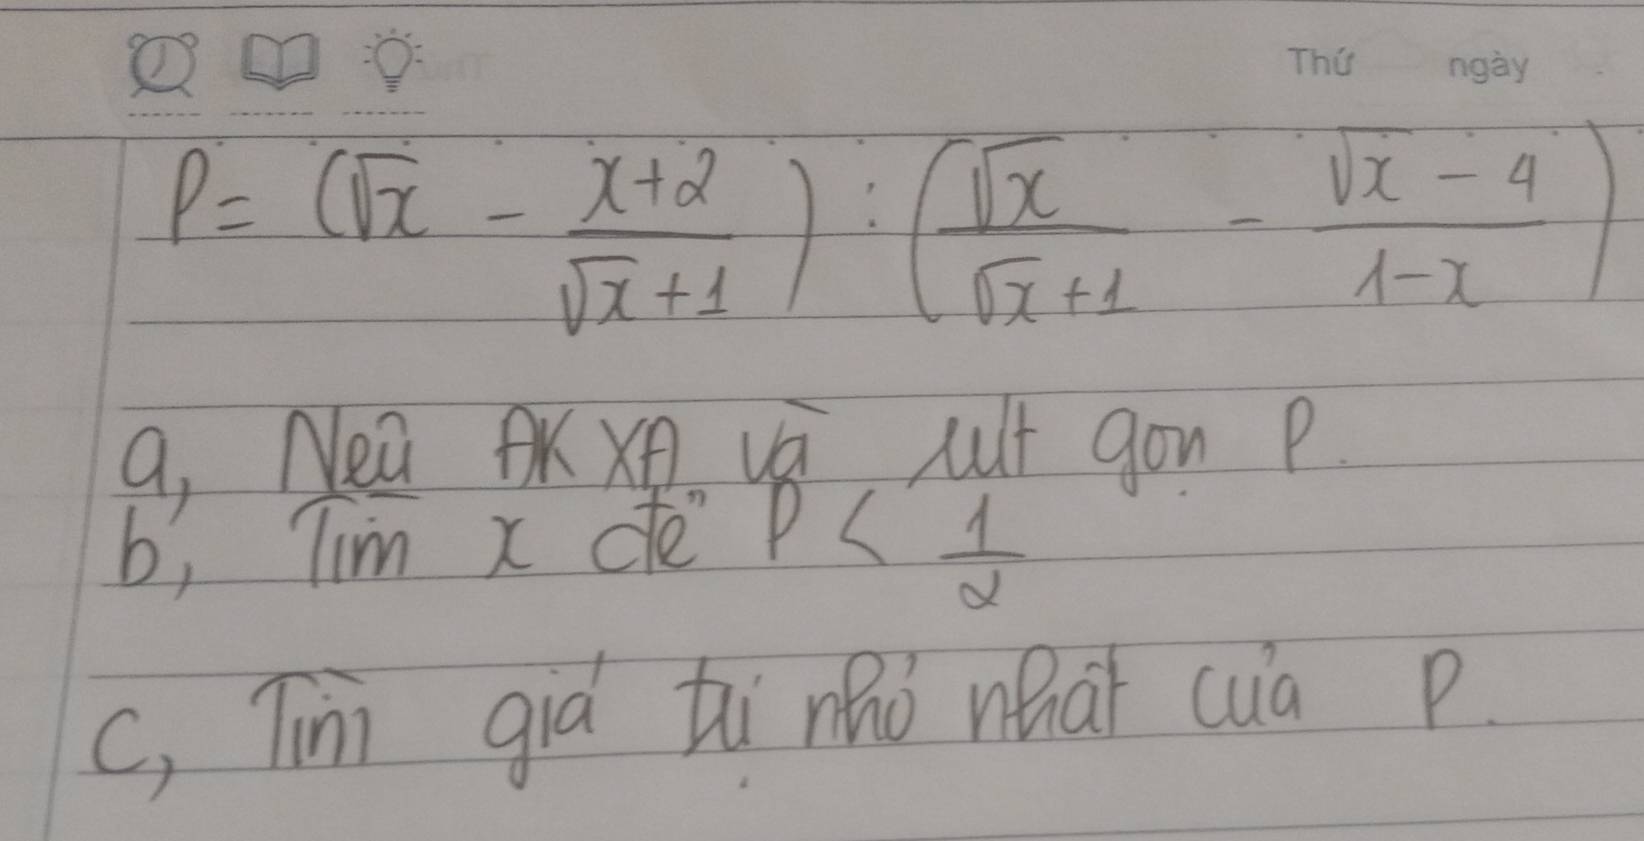 Thứ ngày
P = (√x - (x+2)/(√x+1)) : (√x/(√x+1) - (√x-4)/(1-x))
a, Nêu ĐKXĐ và rút gọn P.
b, Tìm x để P < 1/2
c, Tìm giá trị nhỏ nhất của P.